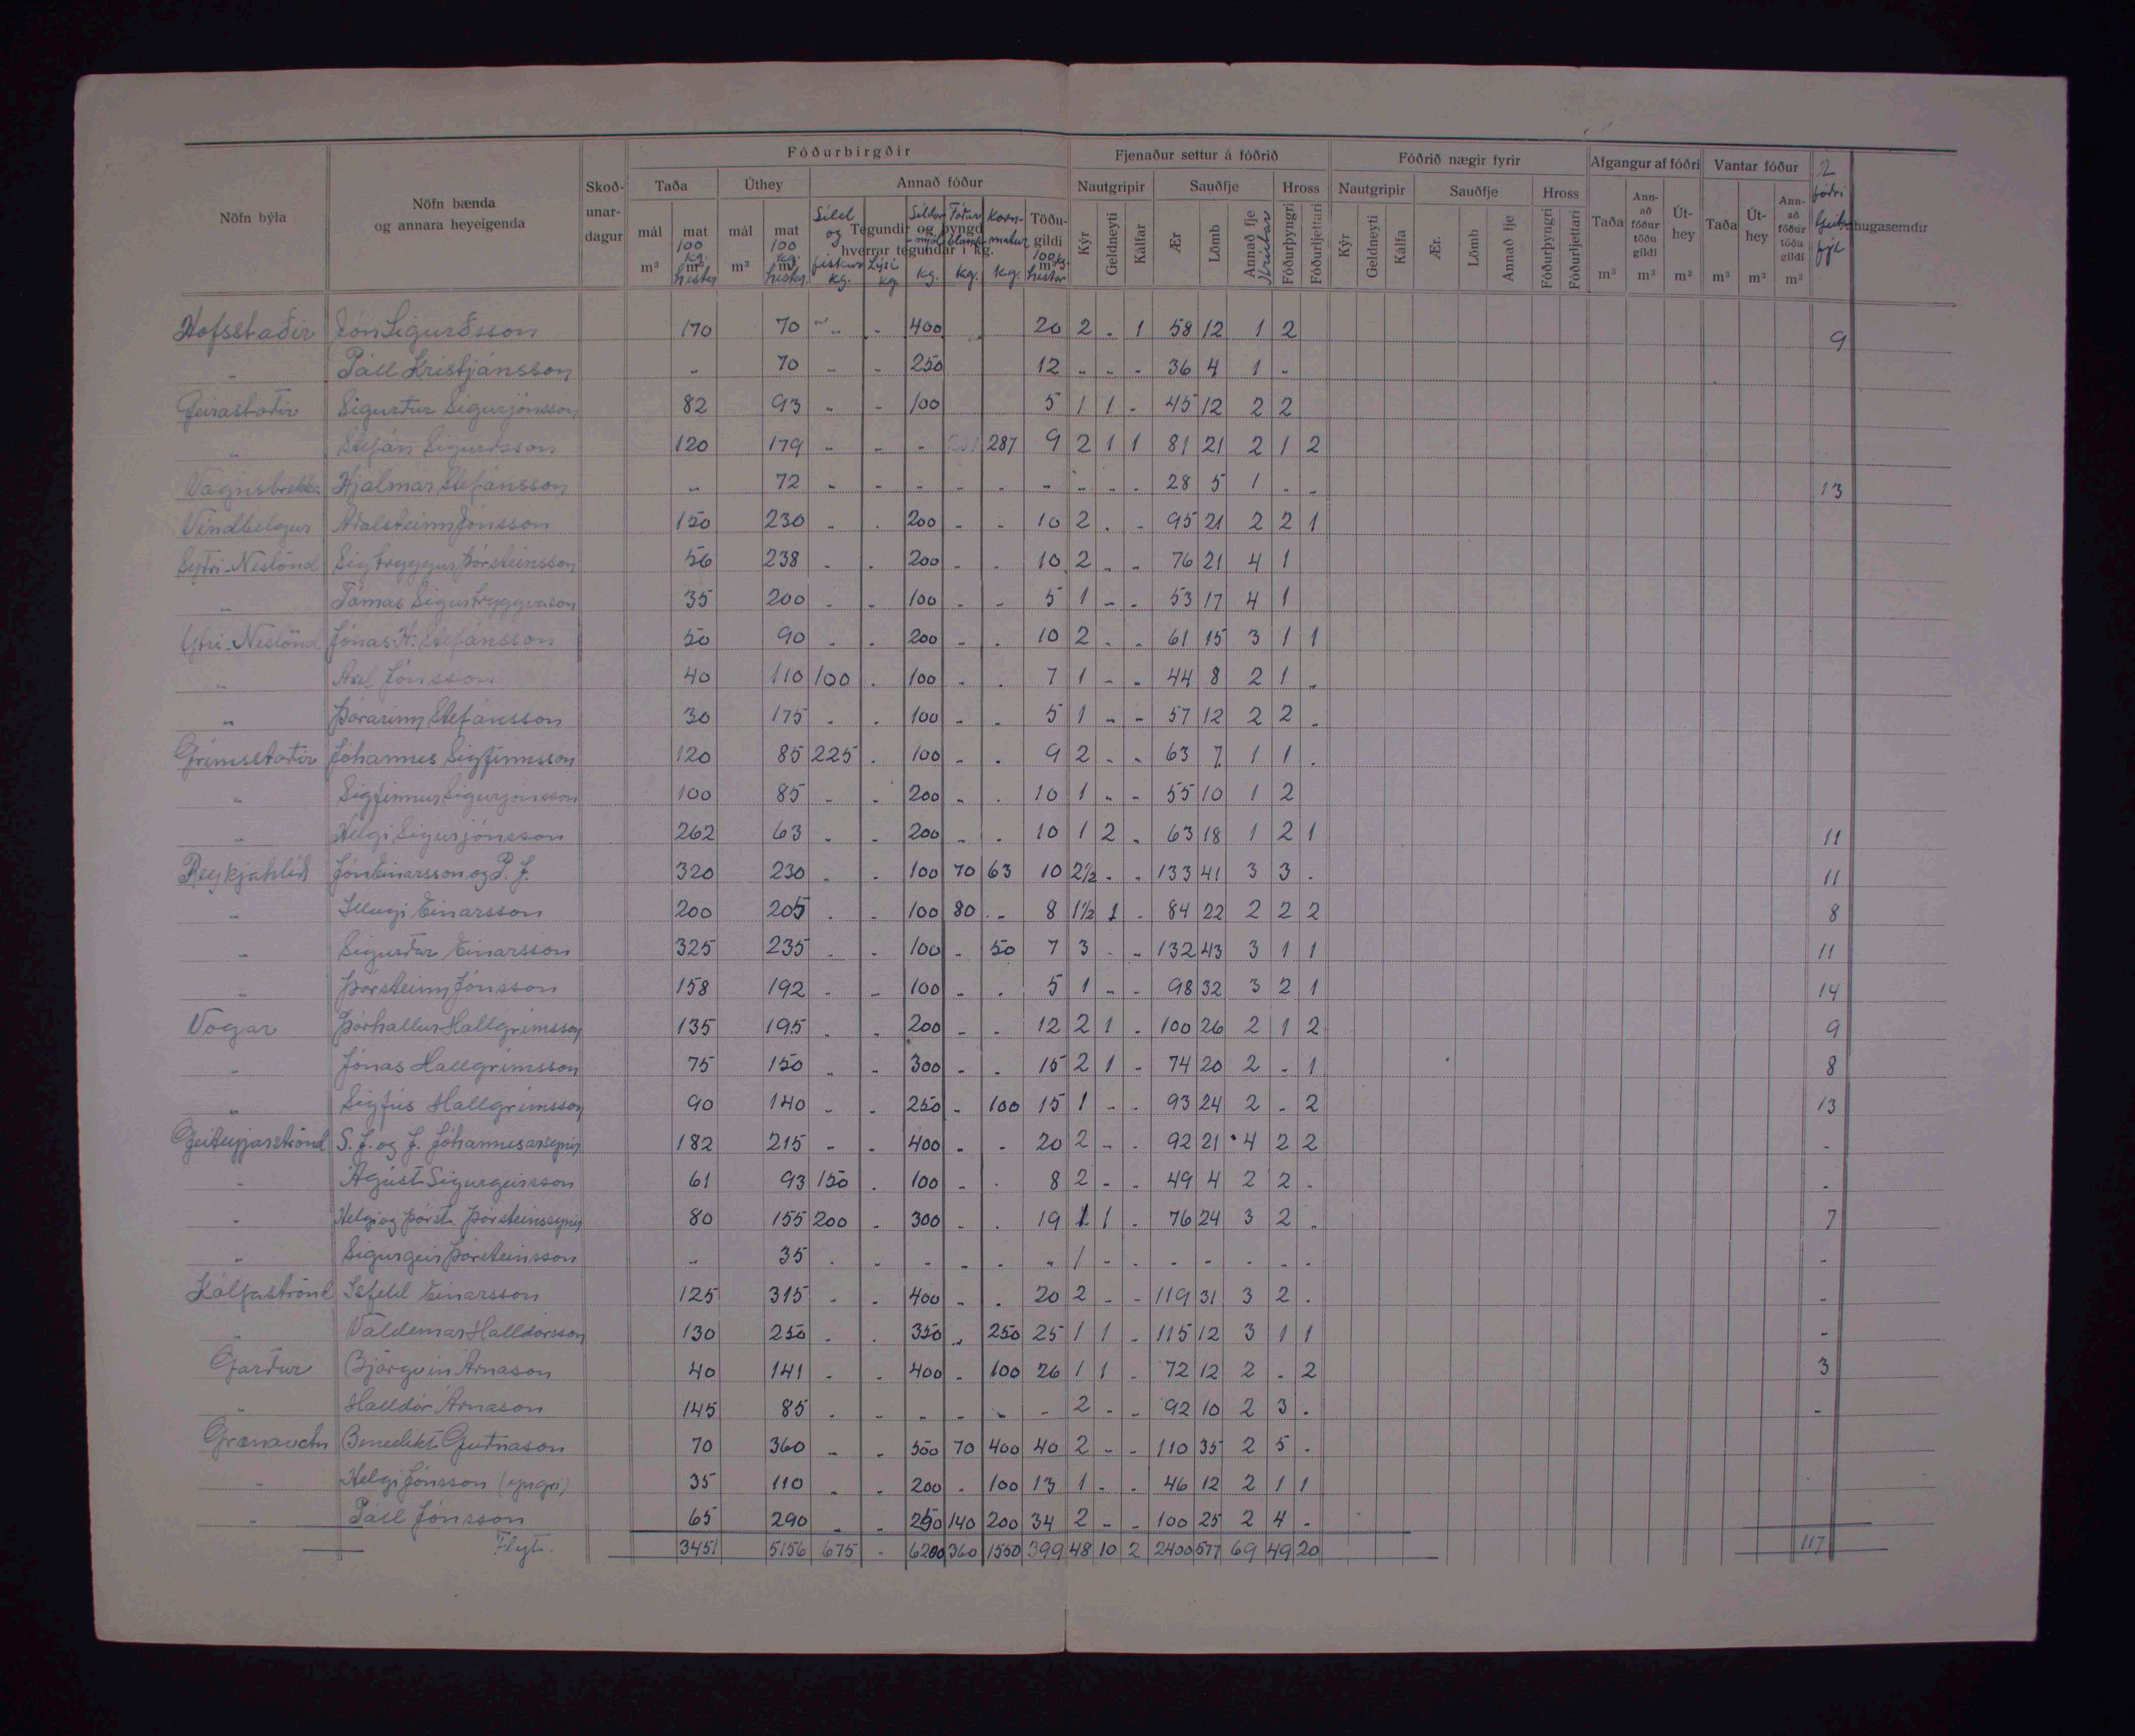 Fóðurbirgðir Fjenaður settur á fóðrið Fóðrið nægir fyrir Afgangur af fóðri Vantar fóður
Nöfn býla Nöfn bænda og annara heyeigenda Skoð-unar-dagur Taða Úthey Annað fóður Nautgripir Sauðfje Hross Nautgripir Sauðfje Hross Taða Ann-að fóður töðu gildi Út-hey Taða Út-hey Ann-að fóður töðu gildi
mál m³ mat 100 kg. m³ hestar mál m³ mat 100 kg. m³ hestar Tegundir og þyngd hverrar tegundar í kg. Síld og fiskur kg. Lýsi kg. Síldar-mjöl kg. Fóður-bland kg. Korn-matur kg. Töðu-gildi 100 kg. m³ hestar Kýr Geldneyti Kálfar Ær Lömb Annað fje Hrútar Fóðurþyngri Fóðurljettari Kýr Geldneyti Kálfa Ær. Lömb Annað fje Fóðurþyngri Fóðurljettari m³ m³ m³ m³ m³ m³
Hofsstaðir Jón Sigurðsson 170 70 " - 400 20 2 - 1 58 12 1 2 9
" Páll Kristjánsson - 70 - - 250 12 - - - 36 4 1 -
Geirastaðir Sigurður Sigurjónsson 82 93 - - 100 5 1 1 - 45 12 2 2
" Stefán Sigurðsson 120 179 - - - 287 9 2 1 1 81 21 2 1 2
Vagnsbrekka Hjálmar Stefánsson - 72 - - - - - - - - - 28 5 1 - - 13
Vindbelgur Aðalsteinn Jónsson 150 230 - - 200 - - 10 2 - - 95 21 2 2 1
Syðri-Neslönd Sigtryggur Þorsteinsson 56 238 - - 200 - - 10 2 - - 76 21 4 1
" Tómas Sigurtryggvason 35 200 - - 100 - - 5 1 - - 53 17 4 1
Ytri-Neslönd Jónas H. Stefánsson 50 90 - - 200 - - 10 2 - - 61 15 3 1 1
" Axel Jónsson 40 110 100 - 100 - - 7 1 - - 44 8 2 1 -
" Þórarinn Stefánsson 30 175 - - 100 - - 5 1 - - 57 12 2 2 -
Grímsstaðir Jóhannes Sigfinnsson 120 85 225 - 100 - - 9 2 - - 63 7 1 1 -
" Sigfinnur Sigurjónsson 100 85 - - 200 - - 10 1 - - 55 10 1 2
" Helgi Sigurjónsson 262 63 - - 200 - - 10 1 2 - 63 18 1 2 1 11
Reykjahlíð Jón Einarsson og P. J. 320 230 - - 100 70 63 10 2½ - - 133 41 3 3 - 11
" Illugi Einarsson 200 205 - - 100 80 - 8 1½ 1 - 84 22 2 2 2 8
" Sigurður Einarsson 325 235 - - 100 - 50 7 3 - - 132 43 3 1 1 11
" Þorsteinn Jónsson 158 192 - - 100 - - 5 1 - - 98 32 3 2 1 14
Vogar Þórhallur Hallgrímsson 135 195 - - 200 - - 12 2 1 - 100 26 2 1 2 9
" Jónas Hallgrímsson 75 150 - - 300 - - 15 2 1 - 74 20 2 - 1 8
" Sigfús Hallgrímsson 90 140 - - 250 - 100 15 1 - - 93 24 2 - 2 13
Geiteyjarströnd S. J. og J. Jóhannesarsynir 182 215 - - 400 - - 20 2 - - 92 21 4 2 2 -
" Ágúst Sigurgeirsson 61 93 150 - 100 - - 8 2 - - 49 4 2 2 - -
" Helgi og Þórst. Þorsteinssynir 80 155 200 - 300 - - 19 1 1 - 76 24 3 2 - 7
" Sigurgeir Þorsteinsson - 35 - - - - - - 1 - - - - - - - -
Kálfaströnd Ísfeld Einarsson 125 315 - - 400 - - 20 2 - - 119 31 3 2 - -
" Valdemar Halldórsson 130 250 - - 350 - 250 25 1 1 - 115 12 3 1 1 -
Garður Björgvin Árnason 40 141 - - 400 - 100 26 1 1 - 72 12 2 - 2 3
" Halldór Árnason 145 85 - - - - - - 2 - - 92 10 2 3 - -
Grænavatn Benedikt Guðnason 70 360 - - 500 70 400 40 2 - - 110 35 2 5 -
" Helgi Jónsson (yngri) 35 110 - - 200 - 100 13 1 - - 46 12 2 1 1
" Páll Jónsson 65 290 - - 250 140 200 34 2 - - 100 25 2 4 -
Flyt. 3451 5156 675 - 6200 360 1550 399 48 10 2 2400 577 69 49 20 117